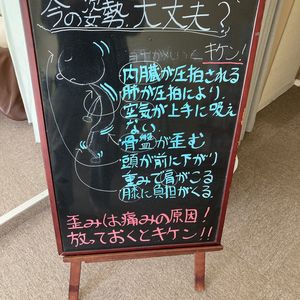 今の姿勢、大丈夫?
キケン!
内臓が圧拍される
肺が圧拍により
空気が上手に吸え
ない
骨盤が歪む
頭が前に下がり
重みで肩がこる
膝に負担がくる
歪みは痛みの原因!
放っておくとキケン!!